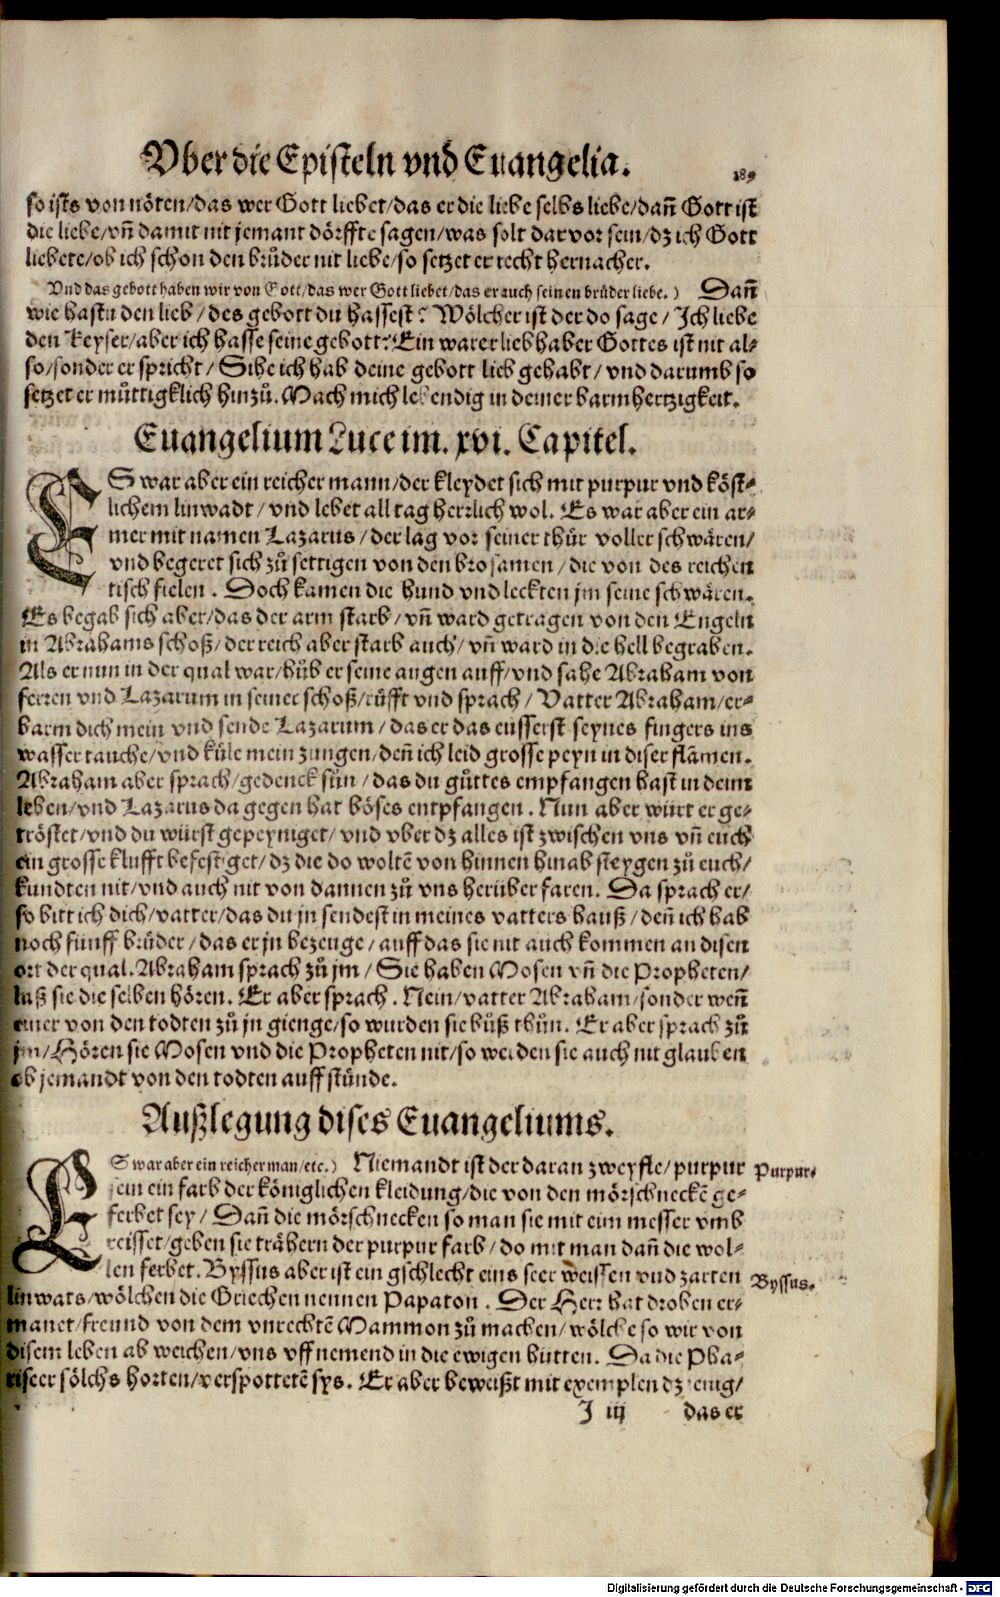 Vber die Episteln vnd Euangelia. 189
so ists von nöten/das wer Gott liebet/das er die liebe selbs liebe/dañ Gott ist
die liebe/vñ damit nit jemant dörffte sagen/was solt dar vor sein/dz ich Gott
liebete/ob ich schon den brůder nit liebe/so setzet er recht hernacher.
Vnd das gebott haben wir von Gott/das wer Gott liebet/das er auch seinen brůder liebe.) Dañ
wie hastu den lieb/des gebott du hassest? Wölcher ist der do sage/Ich liebe
den Keyser/aber ich hasse seine gebott? Ein warer liebhaber Gottes ist nit al-
so/sonder er spricht/Sihe ich hab deine gebott lieb gehabt/vnd darumb so
setzet er můttigklich hinzů. Mach mich lebendig in deiner barmhertzigkeit.
Euangelium Luce im. xvi. Capitel.
ES war aber ein reicher mann/der kleydet sich mit purpur vnd köst-
lichem linwadt/vnd lebet all tag herrlich wol. Es war aber ein ar-
mer mit namen Lazarus/der lag vor seiner thür voller schwären/
vnd begeret sich zů settigen von den brosamen/die von des reichen
tisch fielen. Doch kamen die hund vnd leckten jm seine schwären.
Es begab sich aber/das der arm starb/vñ ward getragen von den Engeln
in Abrahams schoß/der reich aber starb auch/vñ ward in die hell begraben.
Als er nun in der qual war/hůb er seine augen auff/vnd sahe Abraham von
ferren vnd Lazarum in seiner schoß/růfft vnd sprach/Vatter Abraham/er-
barm dich mein vnd sende Lazarum/das er das eusserst seynes fingers ins
wasser tauche/vnd küle mein zungen/deñ ich leid grosse peyn in diser flãmen.
Abraham aber sprach/gedenck sün/das du gůttes empfangen hast in deim
leben/vnd Lazarus da gegen hat böses entpfangen. Nun aber würt er ge-
tröstet/vnd du würst gepeyniget/vnd vber dz alles ist zwischen vns vñ euch
ein grosse klufft befestiget/dz die do woltẽ von hinnen hinab steygen zů euch/
kundten nit/vnd auch nit von dannen zů vns herüber faren. Da sprach er/
so bitt ich dich/vatter/das du jn sendest in meines vatters hauß/deñ ich hab
noch fünff brůder/das er jn bezeuge/auff das sie nit auch kommen an disen
ort der qual. Abraham sprach zů jm/Sie haben Mosen vñ die Propheten/
laß sie die selben hören. Er aber sprach. Nein/vatter Abraham/sonder weñ
einer von den todten zů jn gienge/so wurden sie bůß thůn. Er aber sprach zů
jm/Hören sie Mosen vnd die Propheten nit/so werden sie auch nit glauben
ob jemandt von den todten auff stünde.
Außlegung dises Euangeliums.
ES war aber ein reicher man/etc.) Niemandt ist der daran zweyfle/purpur
sein ein farb der königlichen kleidung/die von den mörschneckẽ ge-
ferbet sey/Dañ die mörschnecken so man sie mit eim messer vmb
reisset/geben sie trähern der purpur farb/do mit man dañ die wol-
len ferbet. Byssus aber ist ein gschlecht eins seer weissen vnd zarten
linwats/wölchen die Griechen nennen Papaton. Der Herr hat droben er-
manet/freund von dem vnrechtẽ Mammon zů machen/wölche so wir von
disem leben ab weichen/vns vff nemend in die ewigen hütten. Da die Pha-
riseer sölchs horten/verspottetẽ sys. Er aber beweißt mit exemplen dz jenig/
J iij das er
Purpur.
Byssus.
Digitalisierung gefördert durch die Deutsche Forschungsgemeinschaft - DFG